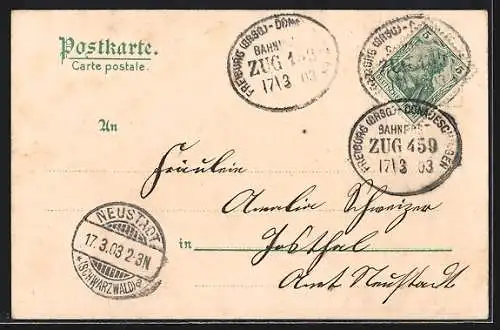 Postkarte.
Carte postale.
FREIBURG (BRSG)-DON
BAHNPOST
ZUG 459
17 3 03
5
FREIBURG (BRSG)-DONAUESCHINGEN
BAHNPOST
ZUG 459
17 3 03
An
Fräulein
Amalia Schweizer
in Josthal
Amt Neustadt
NEUSTADT
17.3.03 2-3N
(SCHWARZWALD)